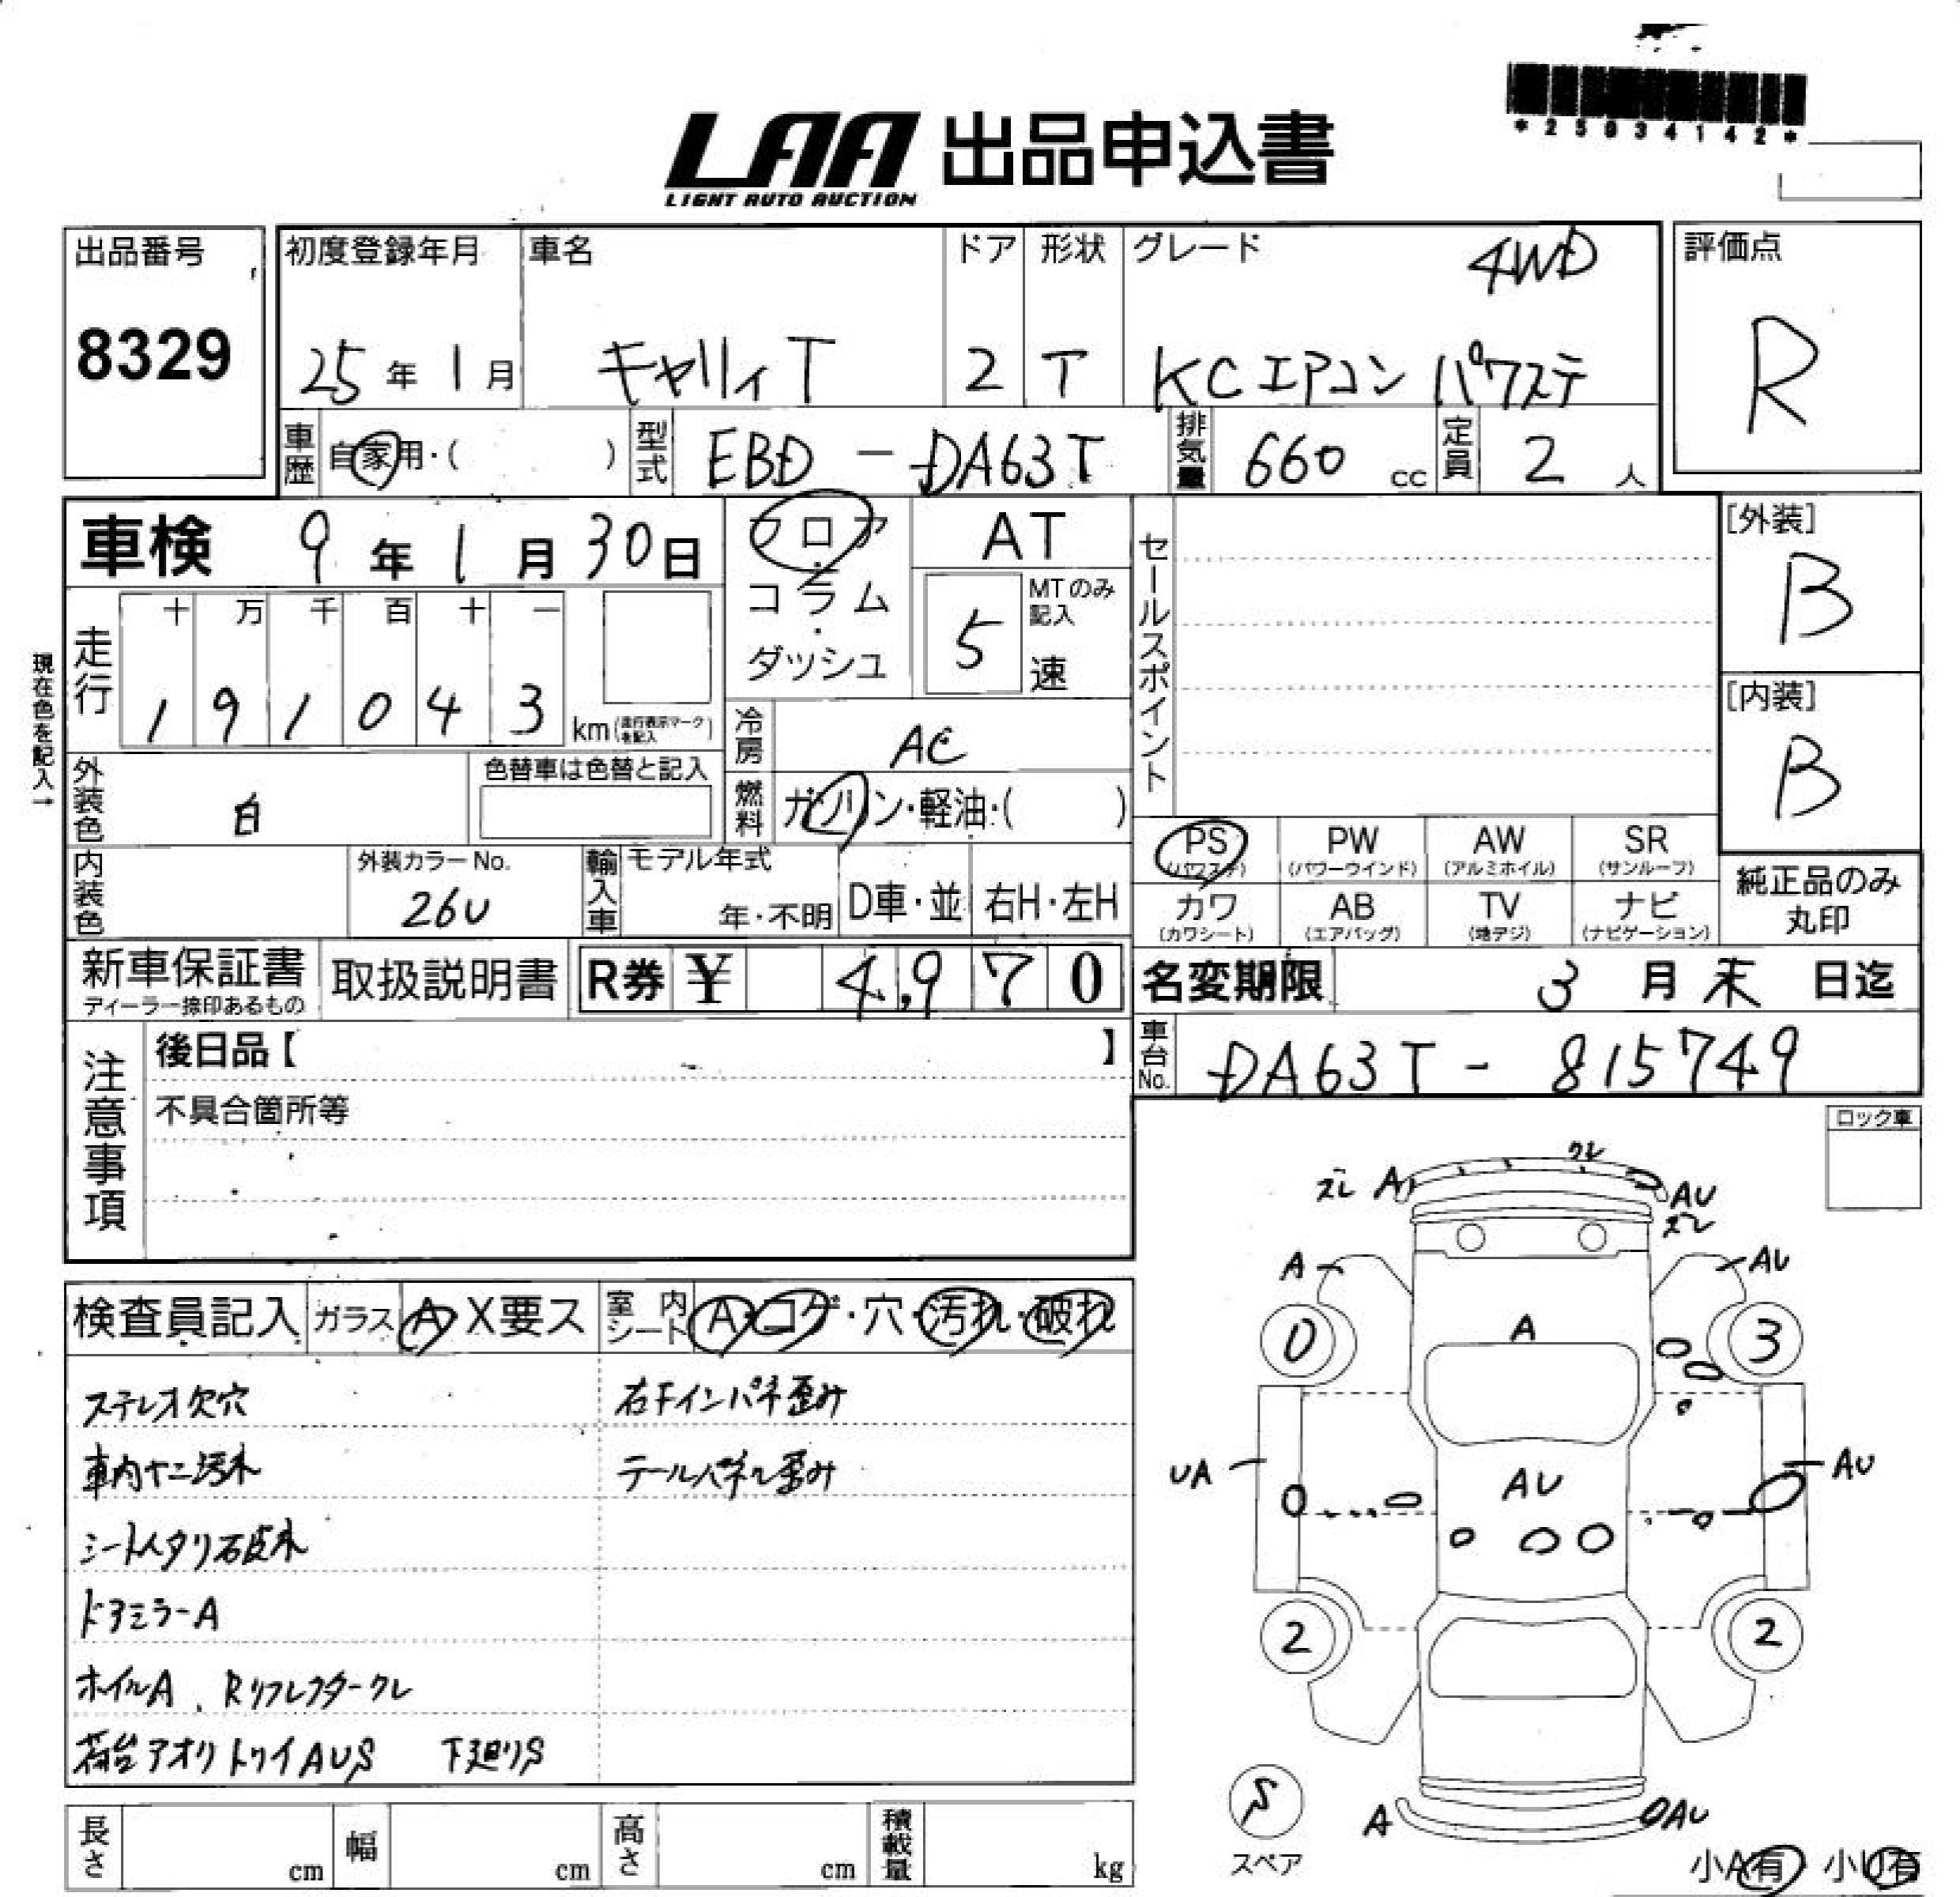 *25034142*
LAA 出品申込書
LIGHT AUTO AUCTION
出品番号 初度登録年月 車名 ドア 形状 グレード 4WD 評価点
8329 25年1月 キャリィT 2 T KCエアコン パワステ R
車歴 自家用・( ) 型式 EBD-DA63T 排気量 660cc 定員 2人
車検 9年1月30日 フロア・コラム・ダッシュ AT セールスポイント [外装]
B
走行 十 万 千 百 十 一 MTのみ記入
191043 km(走行表示マークを記入) 5速 [内装]
B
現在色を記入→
冷房 AC
外装色 白 色替車は色替と記入 燃料 ガソリン・軽油・( )
PS PW AW SR
(パワステ) (パワーウインド) (アルミホイル) (サンルーフ)
内装色 外装カラーNo. 26U 輸入車 モデル年式 年・不明 D車・並 右H・左H
カワ AB TV ナビ 純正品のみ丸印
(カワシート) (エアバッグ) (地デジ) (ナビゲーション)
新車保証書 取扱説明書 R券 ¥ 4,970 名変期限 3月末日迄
ディーラー捺印あるもの
注意事項 後日品【 】 車台No. DA63T-815749
不具合箇所等
ロック車
検査員記入 ガラス A X要ス 室内シート A・コゲ・穴・汚れ・破れ
ステレオ欠穴 右Fインパネ歪み
車内ヤニ汚れ テールパネル歪み
シートヘタリ破れ
ドアミラーA
ホイルA、Rリフレクタークレ
荷台アオリトリイAUS 下廻りS
長さ cm 幅 cm 高さ cm 積載量 kg
ワレ
ズレ A AU
ズレ
A AU
0 A 3
UA AU AU
2 2
S
スペア
A AU
小A有 小U有